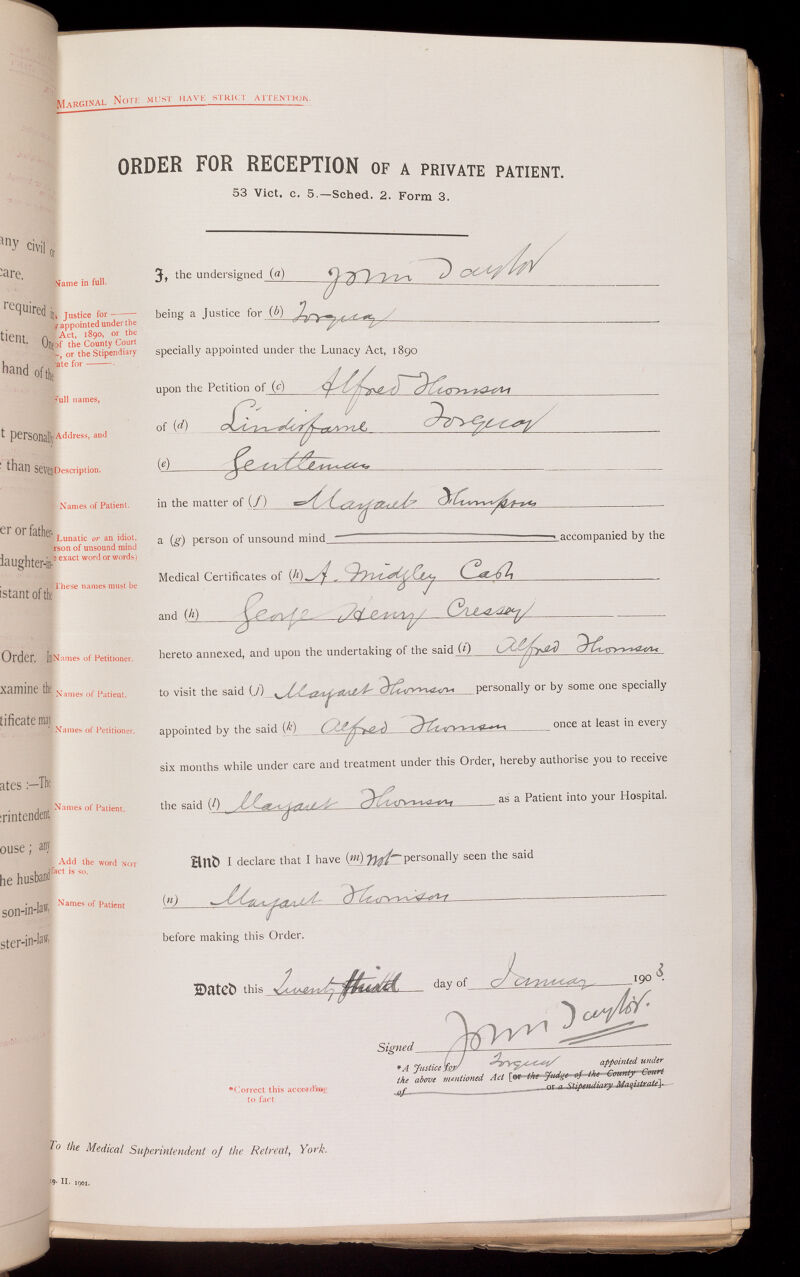 MARGINAL NOTE MUST HAVE STRICT ATTENTION.
ORDER FOR RECEPTION OF A PRIVATE PATIENT.
53 Vict. c. 5.—Sched. 2. Form 3.
any civil or
care.
required in
tient. One
hand of the
t personally
than seven
er or father-
daughter-in-
istant of the
Order. In
xamine the
tificate may
ates :—The
rintendent
ouse ; any
he husband
son-in-law,
ster-in-law,
Name in full.
I, the undersigned (a) John Taylor
Justice for ———
appointed under the
Act, 1890, or the
of the County Court
or the Stipendiary
ate for ———.
being a Justice for (b) Torquay
specially appointed under the Lunacy Act, 1890
Full names,
upon the Petition of (c) Alfred Thomson
Address, and
of (d) Lindisfarne Torquay
Description.
(e) Gentleman
Names of Patient.
in the matter of (f) Margaret Thompson
Lunatic or an idiot,
rson of unsound mind
exact word or words)
a (g) person of unsound mind accompanied by the
These names must be
Medical Certificates of (h) A. Midgley Cash
and (h) George Henry Cressey
Names of Petitioner.
hereto annexed, and upon the undertaking of the said (i) Alfred Thomson
Names of Patient.
to visit the said (j) Margaret Thomson personally or by some one specially
Names of Petitioner.
appointed by the said (k) Alfred Thomson once at least in every
six months while under care and treatment under this Order, hereby authorise you to receive
Names of Patient.
the said (l) Margaret Thomson as a Patient into your Hospital.
Add the word NOT
fact is so.
And I declare that I have (m) not personally seen the said
Names of Patient
(n) Margaret Thomson
before making this Order.
Dated this Twenty third day of January 1903.
Signed John Taylor.
*A Justice for Torquay appointed under
the above mentioned Act [or the Judge of the County Court
of or a Stipendiary Magistrate].
*Correct this according
to fact
To the Medical Superintendent of the Retreat, York.
19. II. 1901.